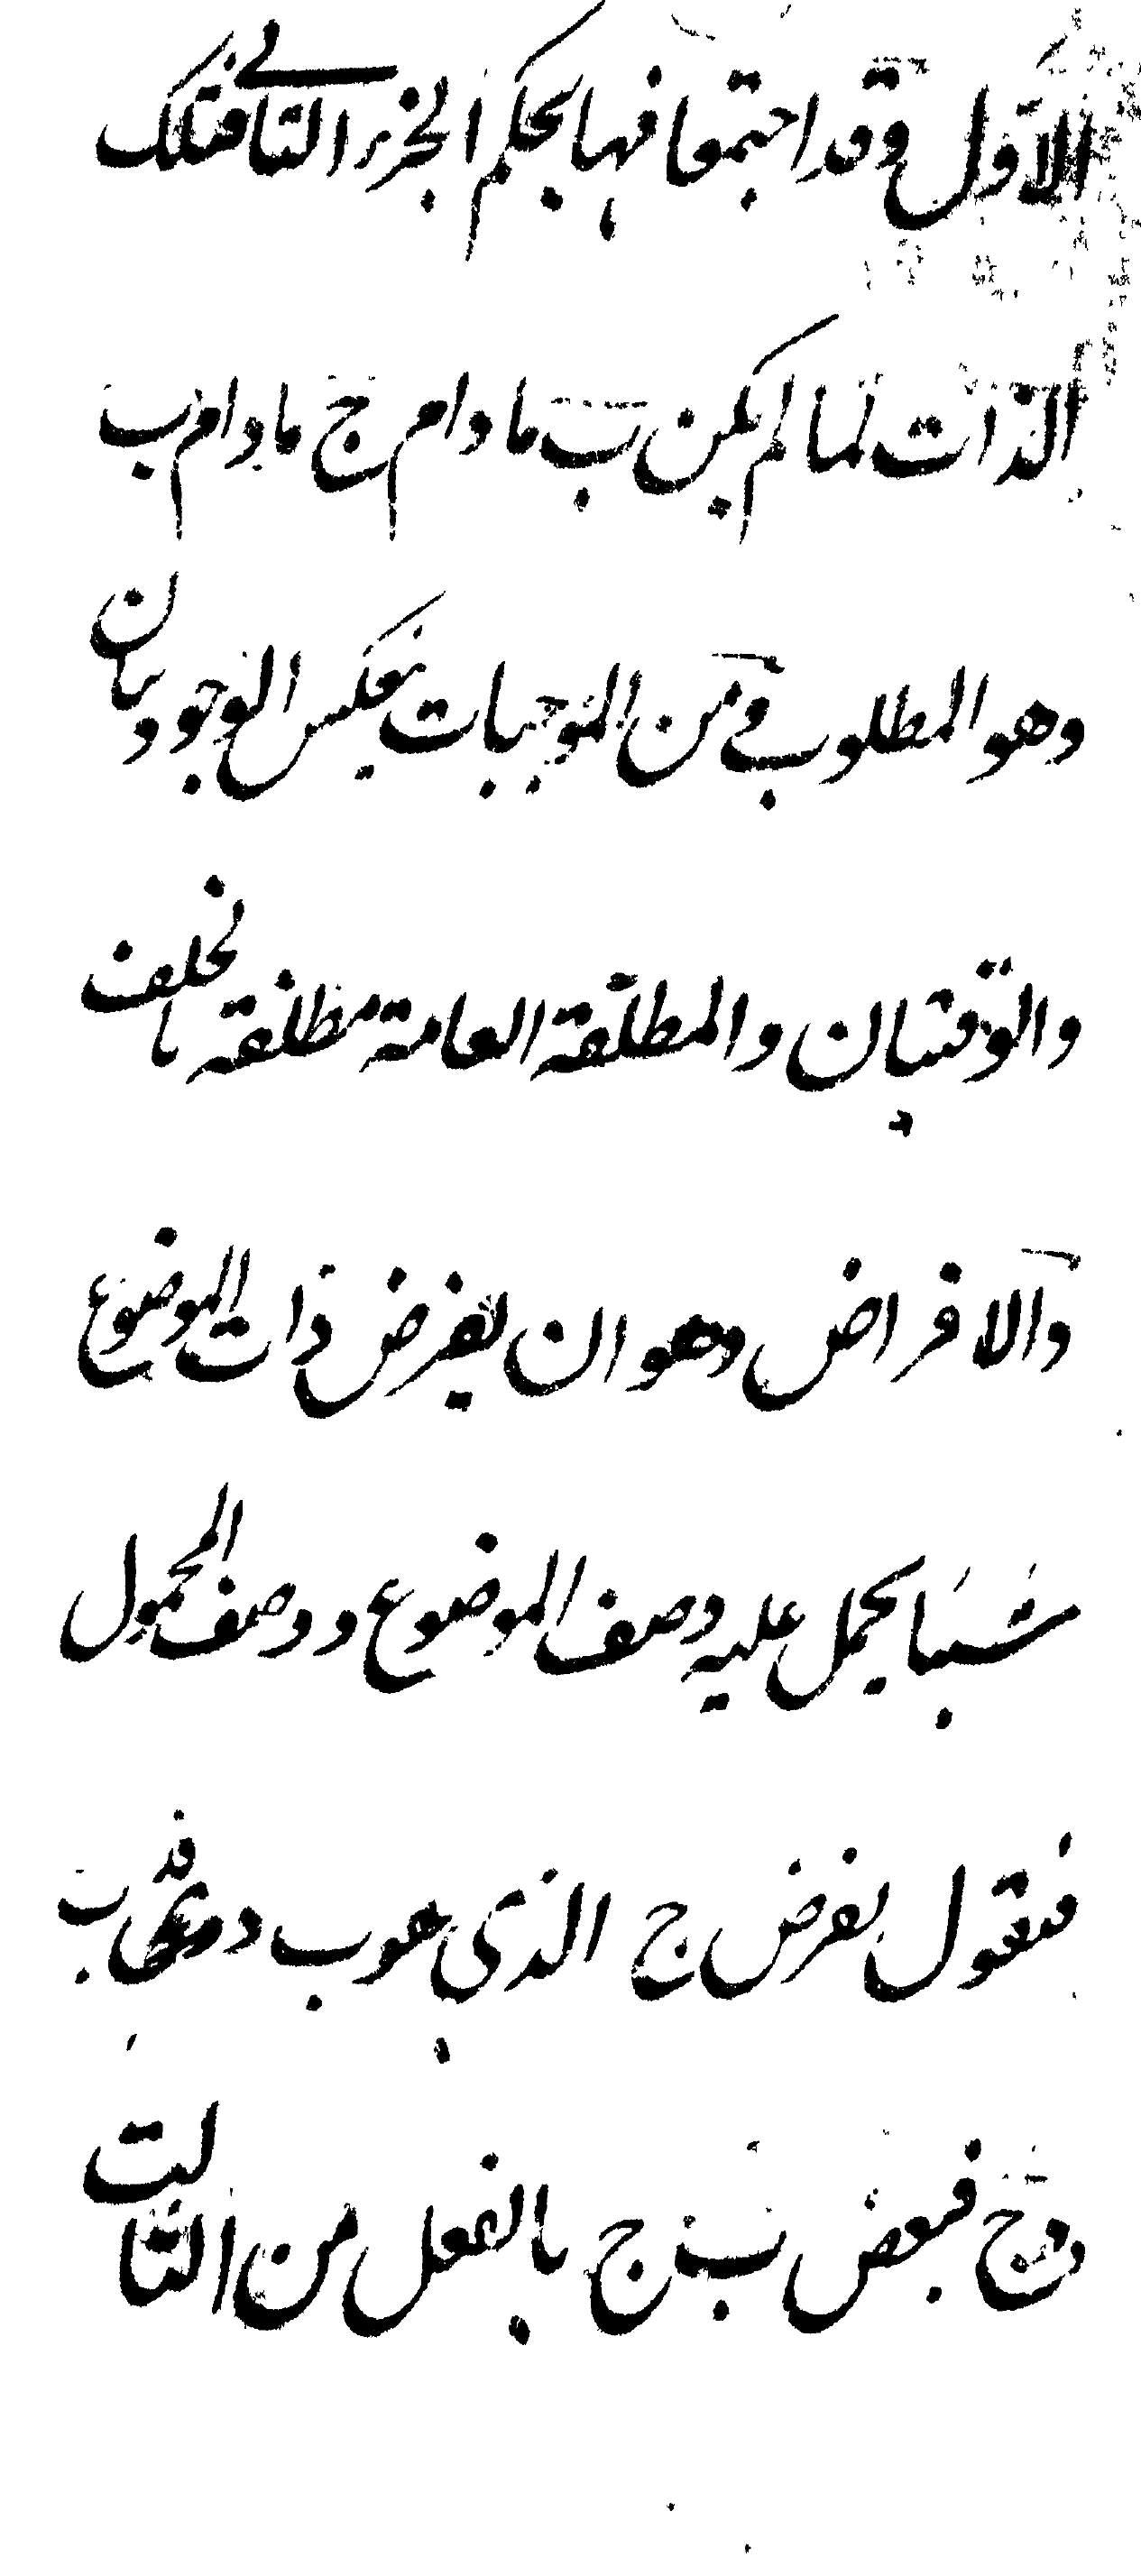 الاول وقد اجتمعا فيها بحكم الجزء الثاني فتلك
الذات لما لم يكن ب ما دام ج ما دام ب
وهو المطلوب وفي من الموجبات تنعكس الوجوديتان
والوقتيتان والمطلقة العامة مطلقة بالخلف
والافراض وهو ان يفرض ذات الموضوع
شيئا يحمل عليه وصف الموضوع و وصف المحمول
فنقول نفرض ج الذي هو ب د فد ب
ود ج فبعض ب ج بالفعل من الثالث